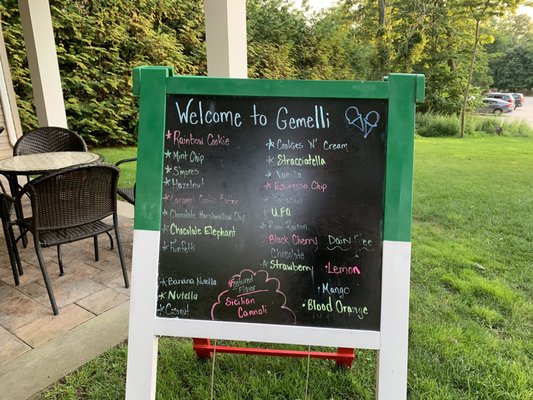 Welcome to Gemelli
Rainbow Cookie
Mint Chip
S'mores
Hazelnut
Caramel Cookie
Chocolate Marshmallow Chip
Chocolate Elephant
Funfetti
Banana Nutella
Nutella
Coconut
Cookies N' Cream
Stracciatella
Vanilla
Espresso Chip
UFO
Rum Raisin
Black Cherry
Chocolate
Strawberry
Featured
Flavor
Sicilian
Cannoli
Dairy Free
Lemon
Mango
Blood Orange